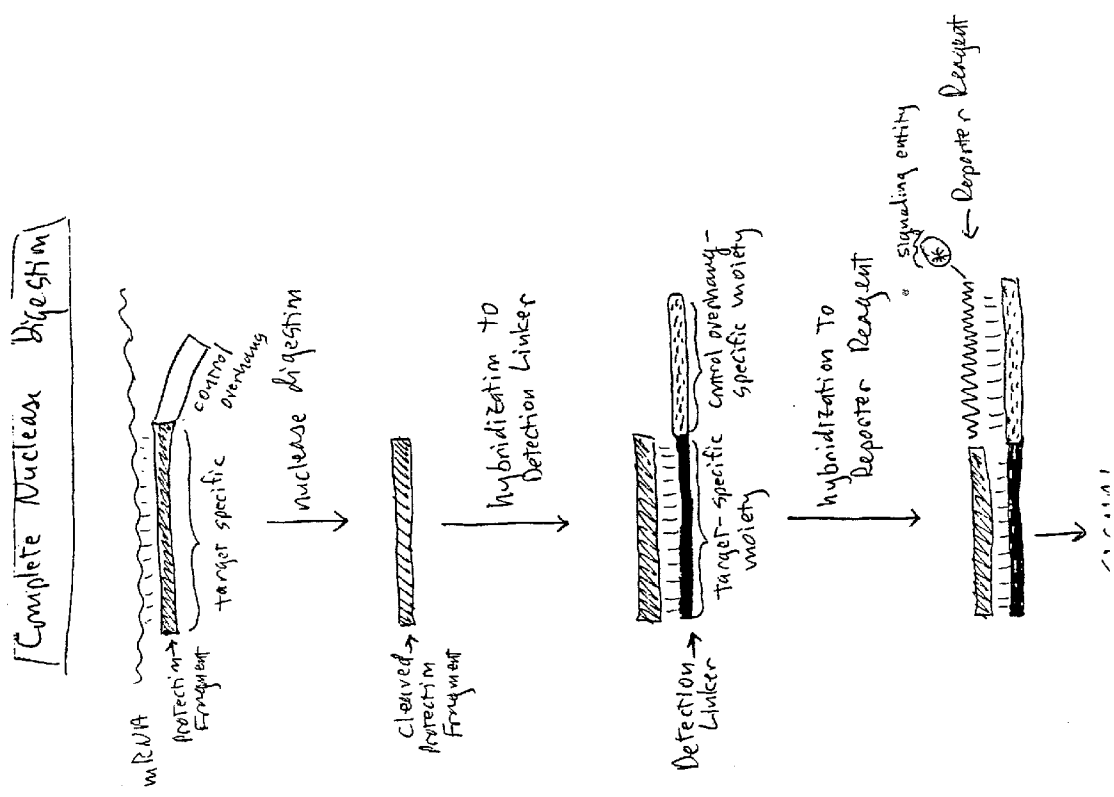 Complete Nuclease Digestion
mRNA
Protection
Fragment
target specific
control
overhang
nuclease digestion
Cleaved
Protection
Fragment
hybridization to
Detection Linker
Detection
Linker
target-specific
moiety
control overhang-
specific moiety
hybridization To
Reporter Reagent
signaling entity
*
Reporter Reagent